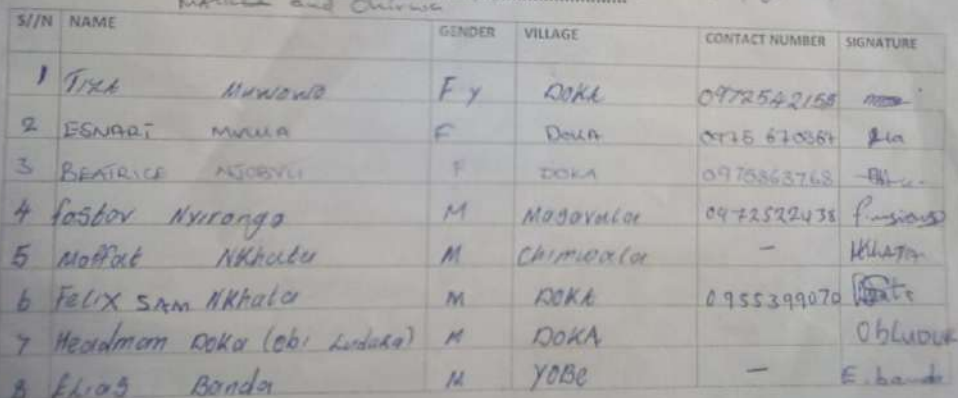 and Chirwa
S//N NAME GENDER VILLAGE CONTACT NUMBER SIGNATURE
1 Tiza Muwowo F y DOKA 0972542155
2 ESNARI F DOKA 0975 670367
3 BEATRICE F DOKA 0975863768
4 fostor Nyirongo M Magavula 0972522438
5 Moffat NKhata M Chimwala - NKHATA
6 Felix SAM NKhata M DOKA 0955399070
7 Headman Doka (obi Ludaka) M DOKA
8 Elias Banda M YOBe - E. banda